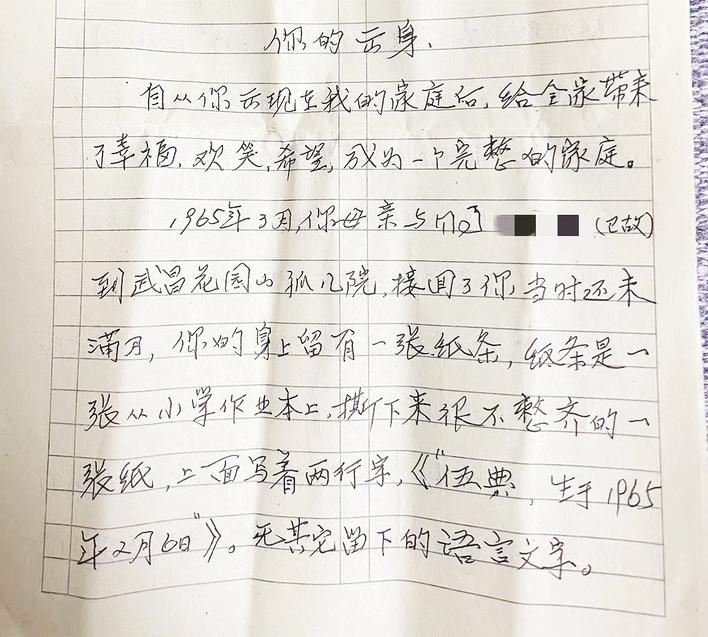 你的出身.
自从你出现在我的家庭后,给全家带来
了幸福,欢笑,希望,成为一个完整的家庭。
1965年3月,你母亲与 (已故)
到武昌花园山孤儿院,接回了你,当时还未
满月,你的身上留有一张纸条,纸条是一
张从小学作业本上,撕下来很不整齐的一
张纸,上面写着两行字,《"伍典,生于1965
年2月6日"》。无其它留下的语言文字。